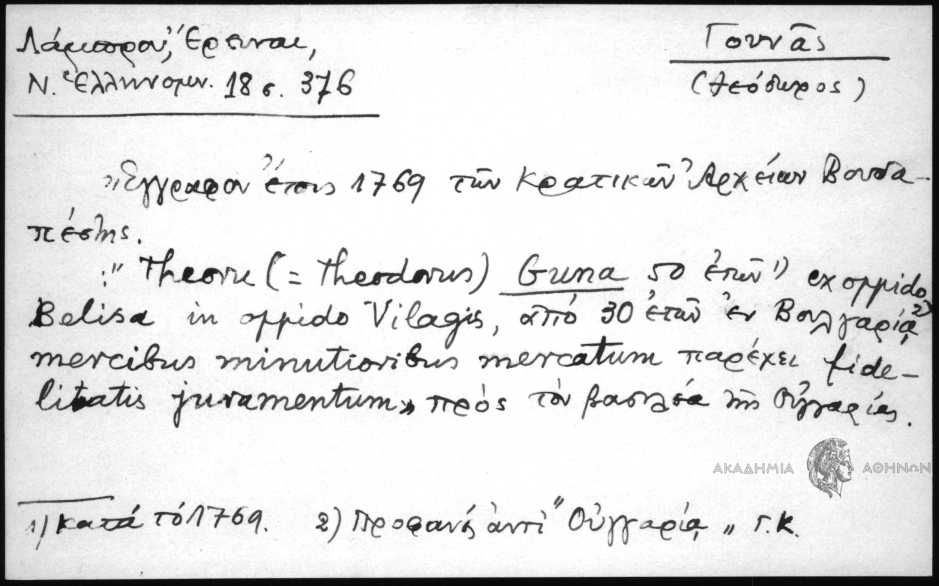 Λάμπρου, Έρευναι,
Ν. Ἑλληνομν. 18 σ. 376
Γουνᾶς
(Θεόδωρος)
"Ἔγγραφον ἔτους 1769 τῶν κρατικῶν Ἀρχείων Βουδα-
πέστης.
:" Theodor (= Theodorus) Guna 50 ἐτῶν 1) ex oppido
Belisa in oppido Vilagis, ἀπό 30 ἐτῶν ἐν Βουλγαρίᾳ 2)
mercibus minutioribus mercatum παρέχει fide-
litatis juramentum» πρός τόν βασιλέα τῆς Οὑγγαρίας.
ΑΚΑΔΗΜΙΑ ΑΘΗΝΩΝ
1) κατά τό 1769. 2) Προφανῶς ἀντί "Οὑγγαρίᾳ" Γ.Κ.